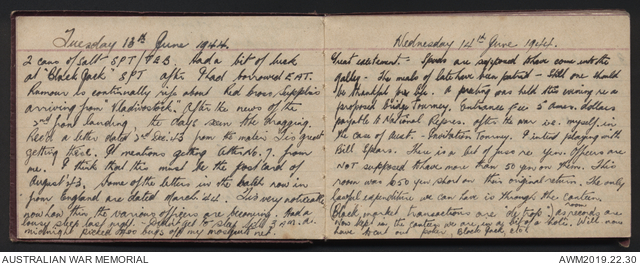 Tuesday 13th June 1944
2 cans of salt SPT / Had a bit of luck
at "Black Jack" SPT after I had borrowed
Rumour is continually rife about Red Cross supplies
arriving from "Vladivostock". After the news of the
2nd front landing the days seem like dragging.
Rec'd a letter dated 3rd Dec. 43 from the mater. Tis great
getting these. It mentions getting letter No. 7. from
me. I think that this must be the postcard of
August 43. Some of the letters in the batch now in
from England are dated March 44. Tis very noticeable
now how thin the various officers are becoming. Had a
lousy sleep last night. Didn't get to sleep till 3 A.M. At
midnight picked bugs off my mosquito net.
Wednesday 14th June 1944.
Great excitement - Spuds are supposed to have come into the
galley - The meals of late have been putrid - Still one should
be thankful for life. A meeting was held this evening re a
proposed Bridge Tourney, Entrance Fee 5 Amer. dollars
payable to National Repres. after the war i.e. myself in
the case of Aust. - Invitation Tourney. I intend playing with
Bill Spiers. There is a bit of fuss re Yen. Officers are
NOT supposed to have more than 50 yen on them. This
room was 650 yen short on their original return. The only
lawful expenditure we can have is through the canteen.
Black market transactions are "de trop" as records are
room
now kept in the canteen we are in a bit of a hole. Will now
have to cut out poker, Black Jack, etc.
AUSTRALIAN WAR MEMORIAL
AWM2019.22.30